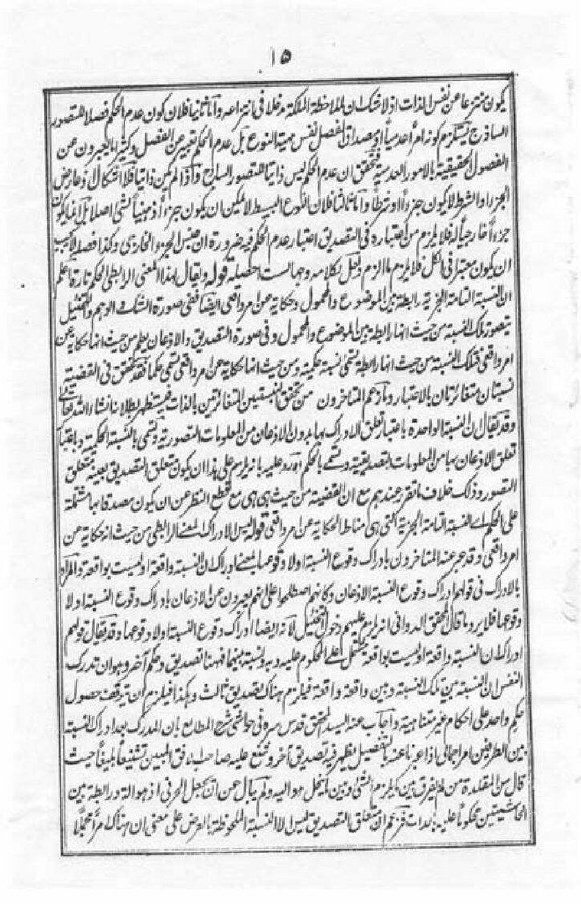 ١٥
يكون منتزعا عن نفس الذات اذ لا شك ان لملاحظة الملكة مدخلا فى انتزاعه واما ثانيا فلان كون عدم الحكم فصلا للتصور
الساذج يستلزم كونه امرا عدميا اذ مصداق الفصل نفس مهية النوع بل عدم الحكم تعبير عن الفصل وكثيرا ما يعبرون عن
الفصول الحقيقية بالامور العدمية فتحقق ان عدم الحكم ليس ذاتيا للتصور الساذج واذا لم يكن ذاتيا فلا اشكال
الجزء او الشرط لا يكون جزءا او شرطا واما ثالثا فلان النوع البسيط لا يمكن ان يكون جزءا ذهنيا لشئ اصلا
جزءا خارجيا له فلا يلزم من اعتباره فى التصديق اعتبار عدم الحكم فيه ضرورة ان جنس الجزء الخارجى وكذا فصله لا يجب
ان يكون معتبرا فى الكل فلا يلزم ما الزم قوله ويقال لهذا المعنى الرابطى الحكم تارة اعلم
ان النسبة التامة الخبرية رابطة بين الموضوع والمحمول وحكاية عن امر واقعى ايضا ففى صورة الشك والوهم والتخييل
يتصور تلك النسبة من حيث انها رابطة بين الموضوع والمحمول وفى صورة التصديق والاذعان يعلم من حيث انها حكاية عن
امر واقعى فتلك النسبة من حيث انها رابطة تسمى نسبة حكمية ومن حيث انها حكاية عن امر واقعى تسمى حكما فقد تحقق فى القضية
نسبتان متغائرتان بالاعتبار وما زعم المتاخرون من تحقق النسبتين المتغائرتين بالذات فسيظهر بطلانه انشاء الله تعالى
وقد يقال ان النسبة الواحدة باعتبار تعلق الادراك بها بدون الاذعان من المعلومات التصورية وتسمى بالنسبة الحكمية وباعتبار
تعلق الاذعان بها من المعلومات التصديقية وتسمى بالحكم واورد عليه بانه يلزم على هذا ان يكون متعلق التصديق بعينه متعلق
التصور وذلك خلاف ما تقرر عندهم مع ان القضية من حيث هى هى مع قطع النظر عن ان يكون مصدقا بها مشتملة
على الحكم اے النسبة التامة الخبرية التى هى مناط الحكاية عن امر واقعى قوله ليس الا ادراك المعنى الرابطى من حيث انه حكاية عن
امر واقعى وقد عبر عنه المتاخرون بادراك وقوع النسبة اولا وقوعها بمعنى ادراك ان النسبة واقعة او ليست بواقعة والمراد
بالادراك فى قولهم ادراك وقوع النسبة الاذعان وكانهم اصطلحوا على انهم يعبرون عن الاذعان بادراك وقوع النسبة اولا
وقوعها فلا يرد ما قال المحقق الدوانى انه يلزم عليهم دخول التخييل لانه ايضا ادراك وقوع النسبة اولا وقوعها وقد يقال قولهم
ادراك ان النسبة واقعة او ليست بواقعة يشتمل على المحكوم عليه وبه والنسبة بينهما فههنا تصديق وحكم آخر وهو ان تدرك
النفس ان النسبة بين تلك النسبة وبين واقعة واقعة فيلزم هناك تصديق ثالث وهكذا فيلزم ان يتوقف حصول
حكم واحد على احكام غير متناهية واجاب عنه السيد المحقق قدس سره فى حواشى شرح المطالع بان المدرك بعد ادراك النسبة
بين الطرفين امر اجمالى اذا عبرنا عنه بالتفصيل يظهر فيه تصديق آخر وشنع عليه صاحب الافق المبين تشنيعا بليغا حيث
قال من المقلدة من لم يفرق بين كم يلزم الشئ وبين ما ينحل هو اليه ولم يبال عن ان يجعل الحرفى اذ هو آلة ورابطة بين
الحاشيتين محكوما عليه بالذات فزعم ان متعلق التصديق ليس الا النسبة الملحوظة بالعرض على معنى ان هناك امرا مجملا